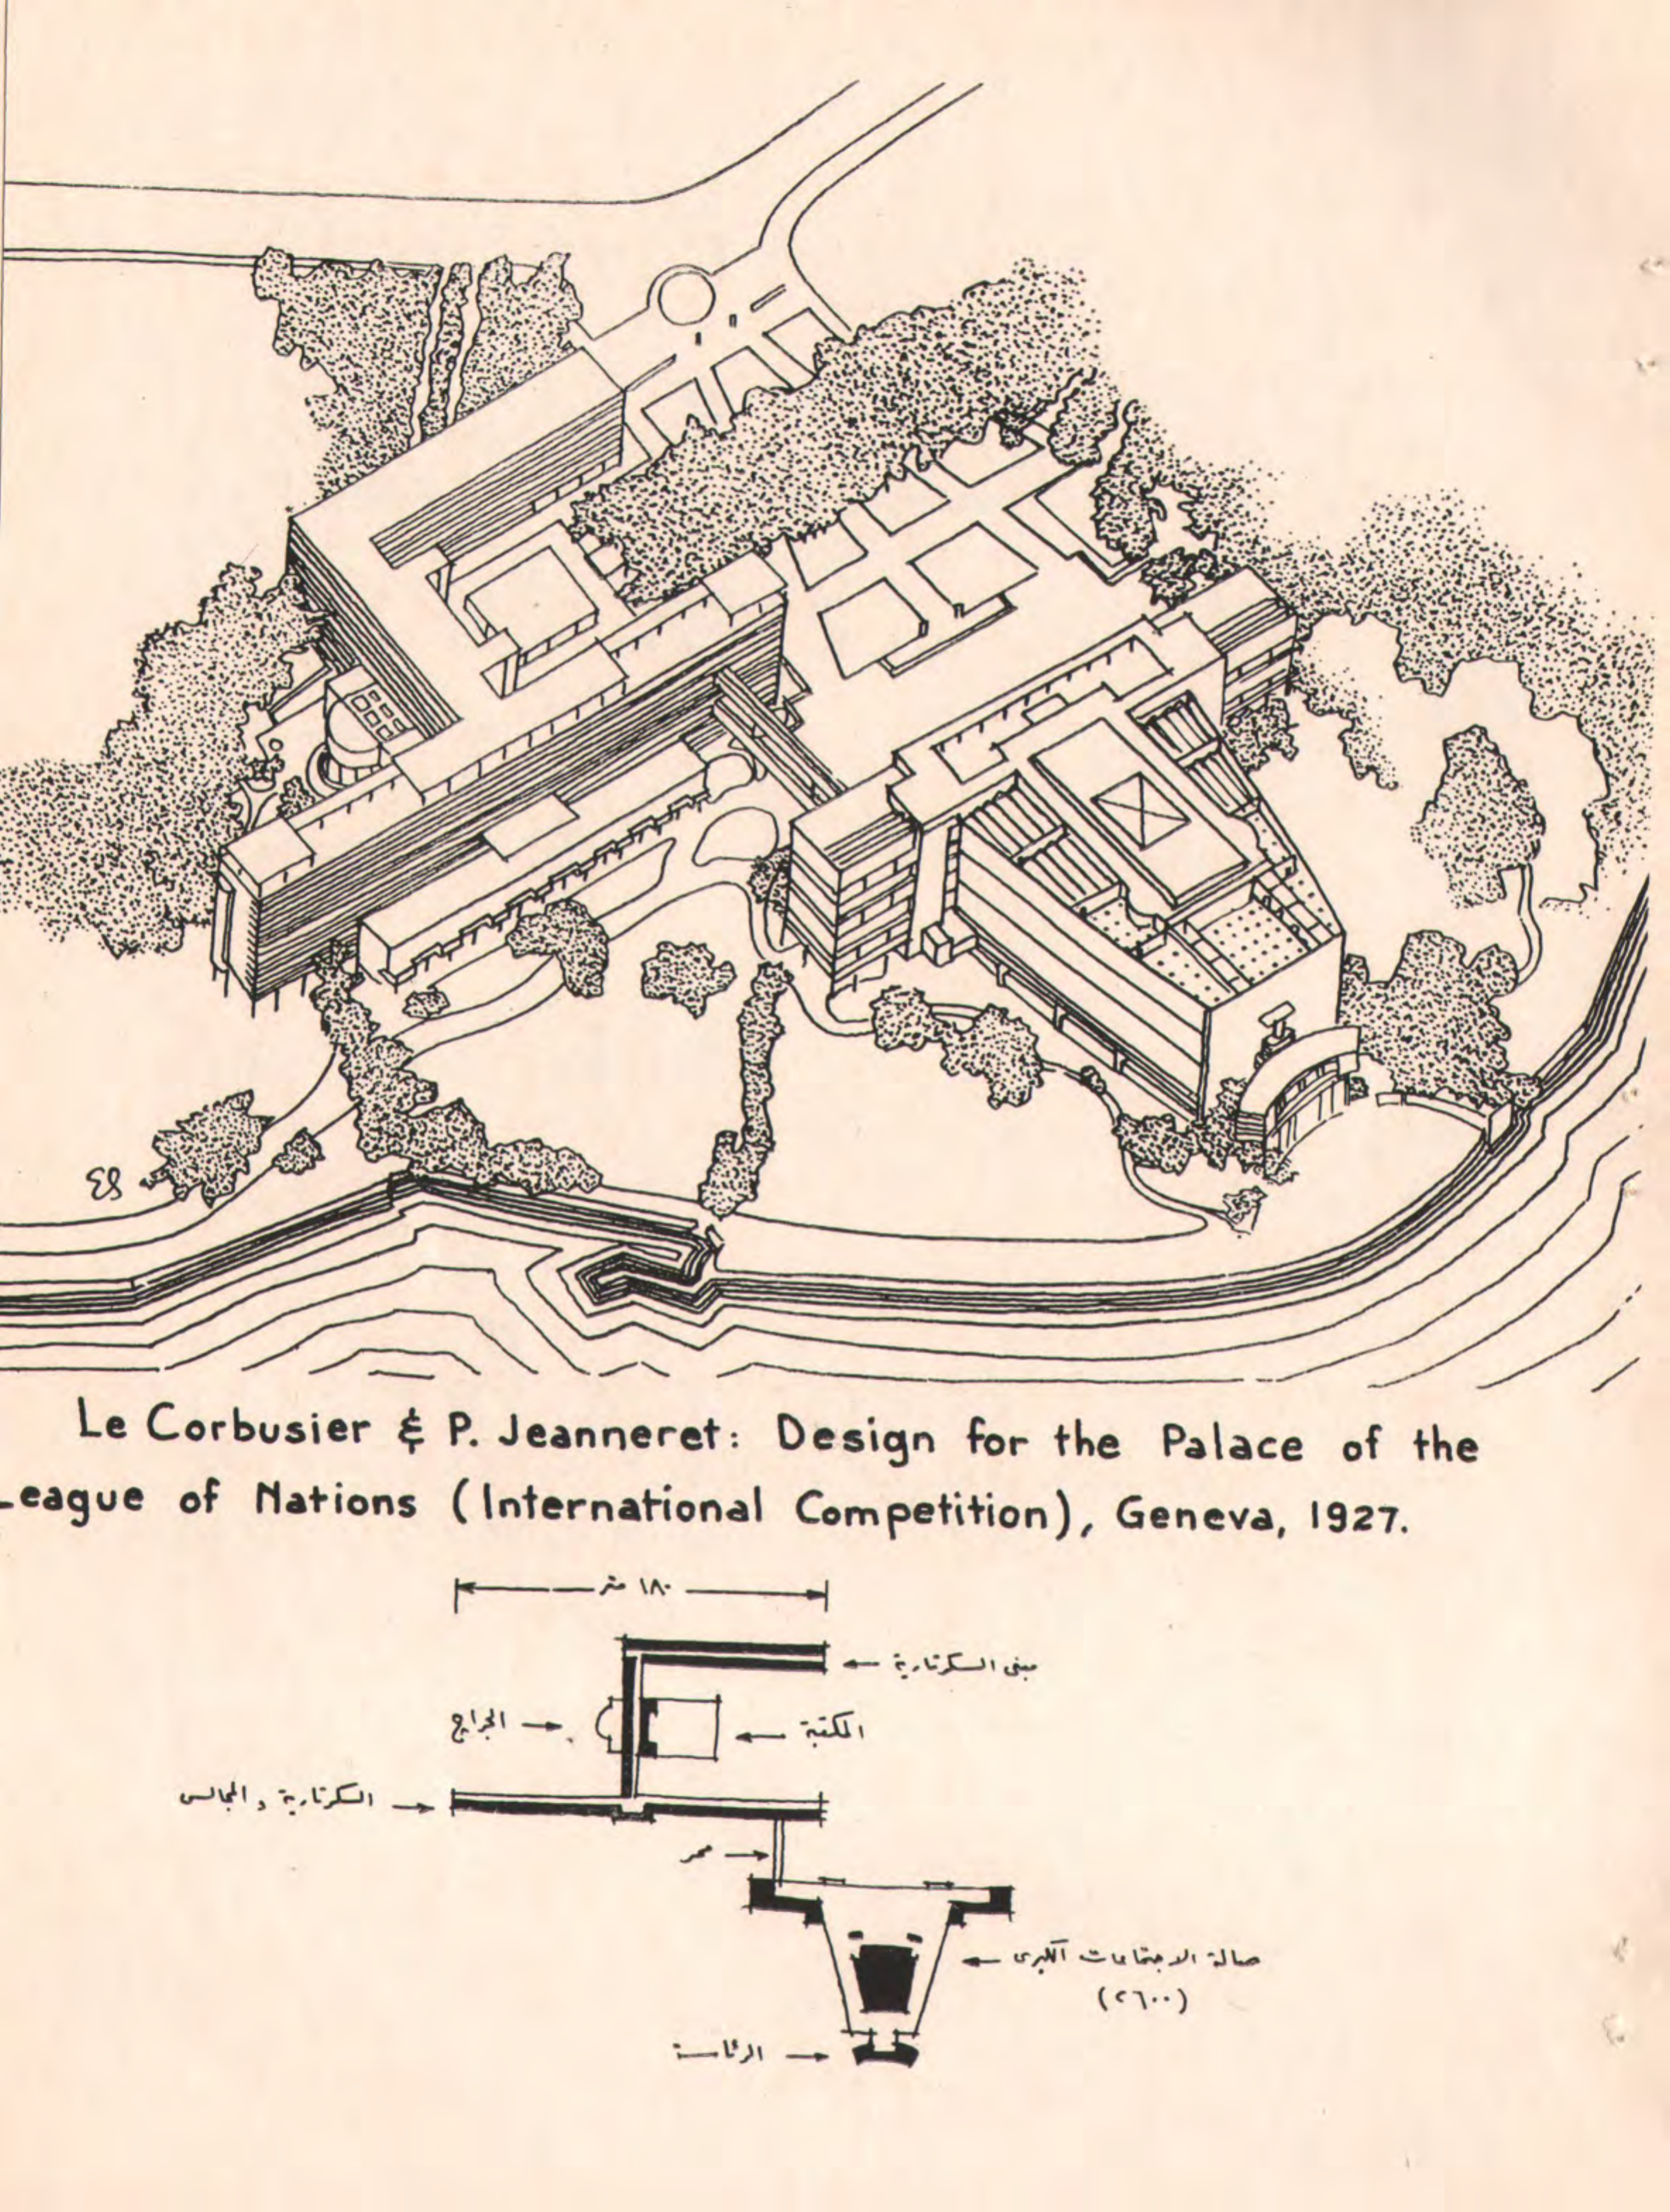 Le Corbusier & P. Jeanneret: Design for the Palace of the
League of Nations (International Competition), Geneva, 1927.
١٨٠ متر
مبنى السكرتارية
الجراج
المكتبة
السكرتارية و المجالس
ممر
صالة الاجتماعات الكبرى
(٢٦٠٠)
الرئاسة